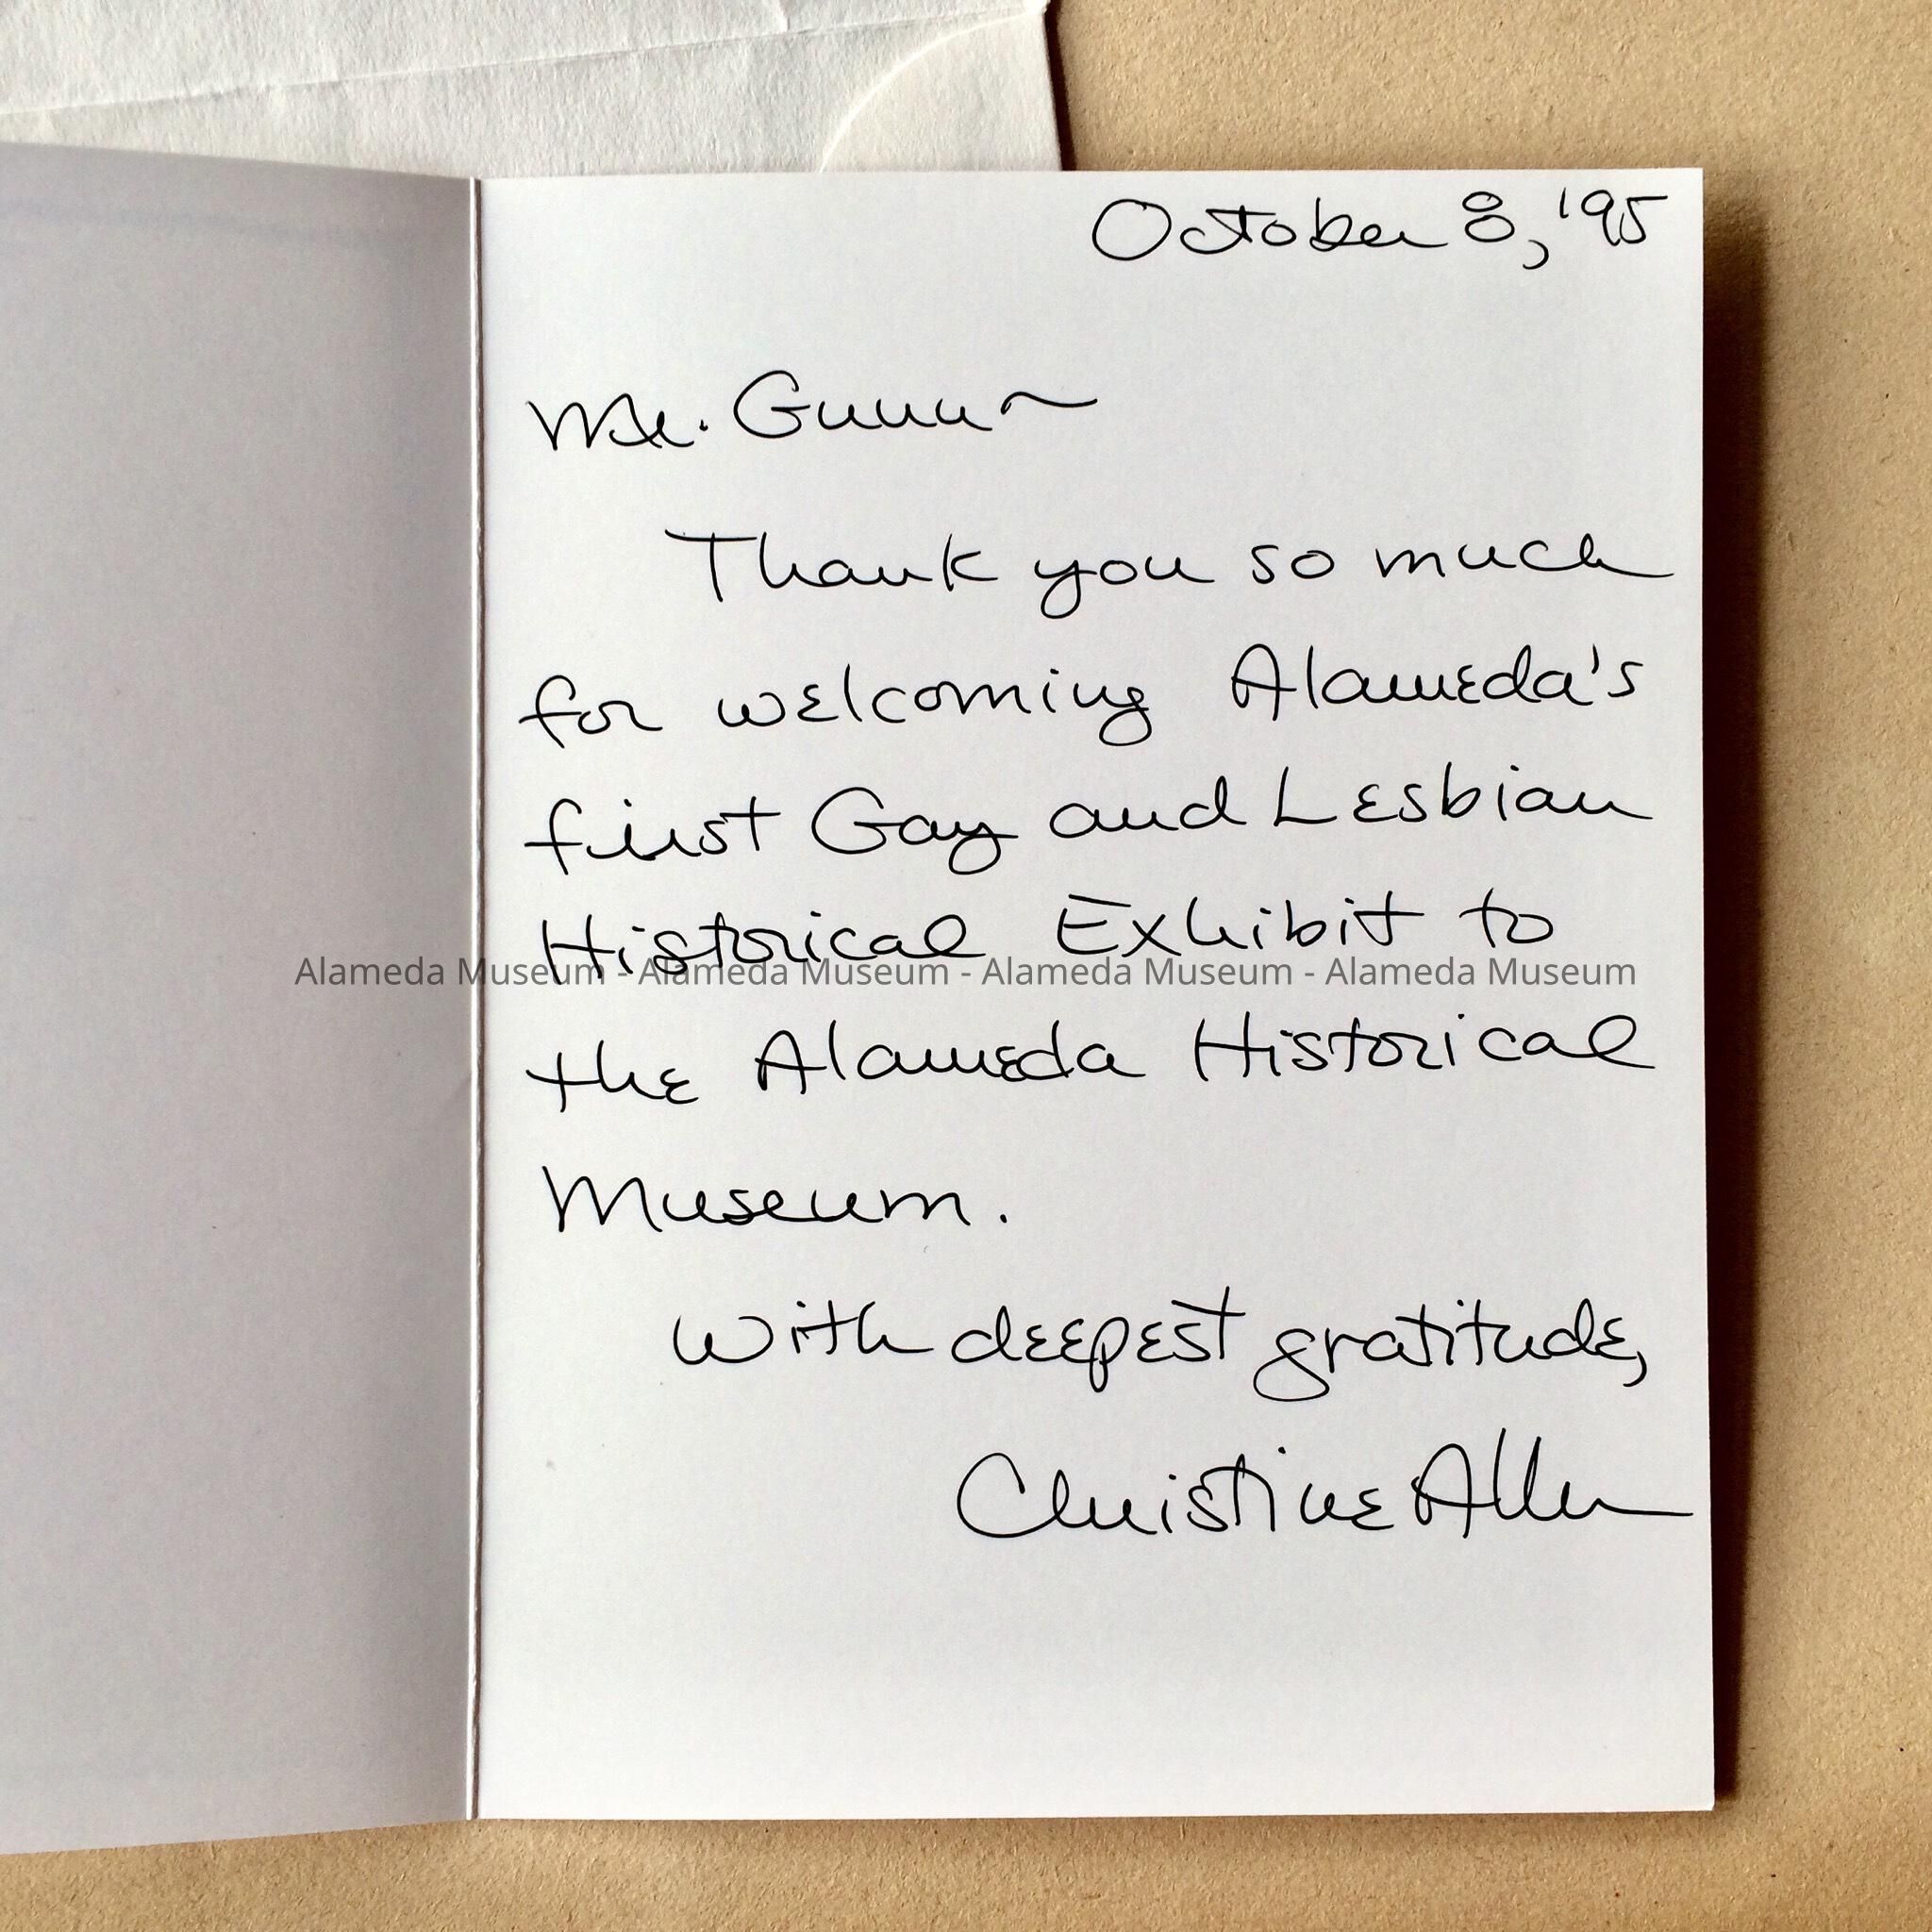 October 8, '95
Mr. Gunn ~
Thank you so much
for welcoming Alameda's
first Gay and Lesbian
Historical Exhibit to
Alameda Museum - Alameda Museum - Alameda Museum - Alameda Museum
the Alameda Historical
Museum.
With deepest gratitude,
Christine Allen